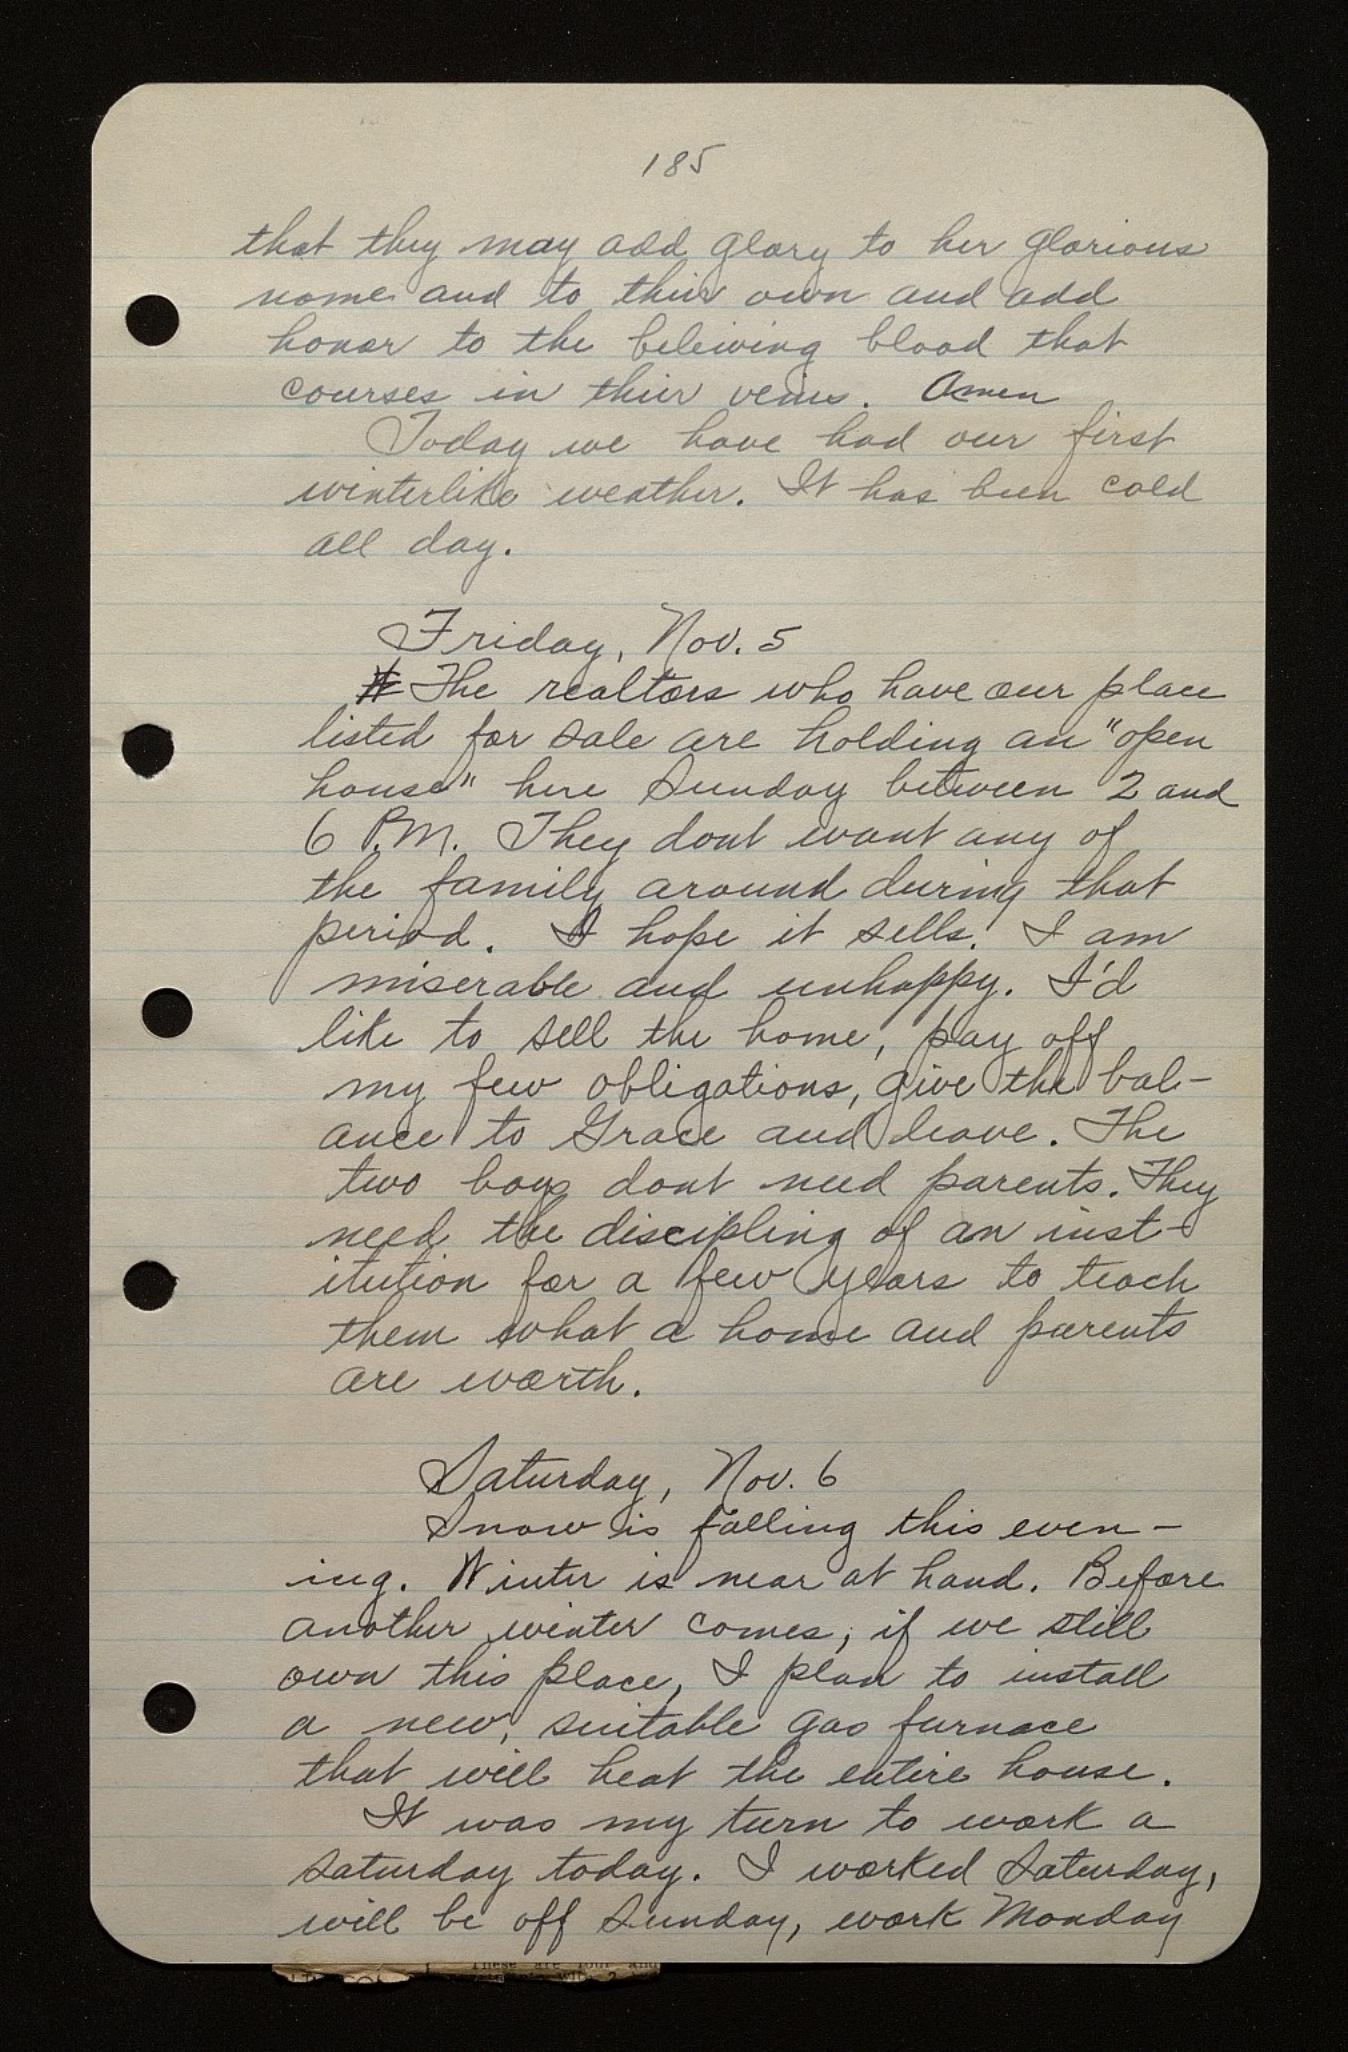 185
that they may add glory to her glorious
name and to thier own and add
honor to the beleiving blood that
courses in thier veins. Amen
Today we have had our first
winterlike weather. It has been cold
all day.
Friday, Nov. 5
The realtors who have our place
listed for sale are holding an "open
house" here Sunday between 2 and
6 P.M. They dont want any of
the family around during that
period. I hope it sells! I am
miserable and unhappy. I'd
like to sell the home, pay off
my few obligations, give the bal-
ance to Grace and leave. The
two boys dont need parents. They
need the discipling of an inst-
itution for a few years to teach
them what a home and parents
are worth.
Saturday, Nov. 6
Snow is falling this even-
ing. Winter is near at hand. Before
another winter comes, if we still
own this place, I plan to install
a new, suitable gas furnace
that will heat the entire house.
It was my turn to work a
Saturday today. I worked Saturday,
will be off Sunday, work Monday
These are four and